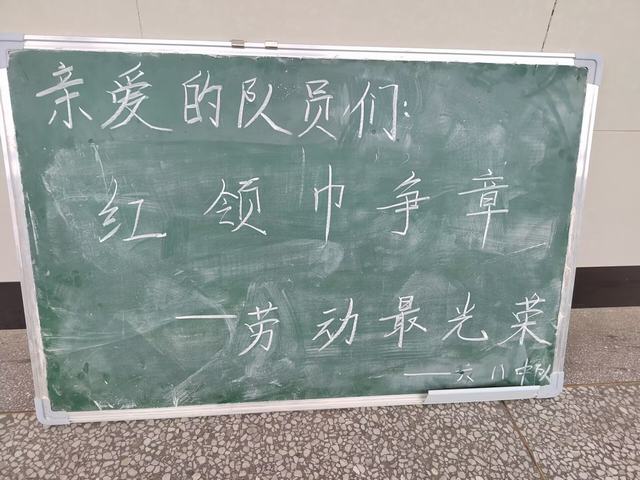 亲爱的队员们:
红领巾争章
——劳动最光荣
——六八中队